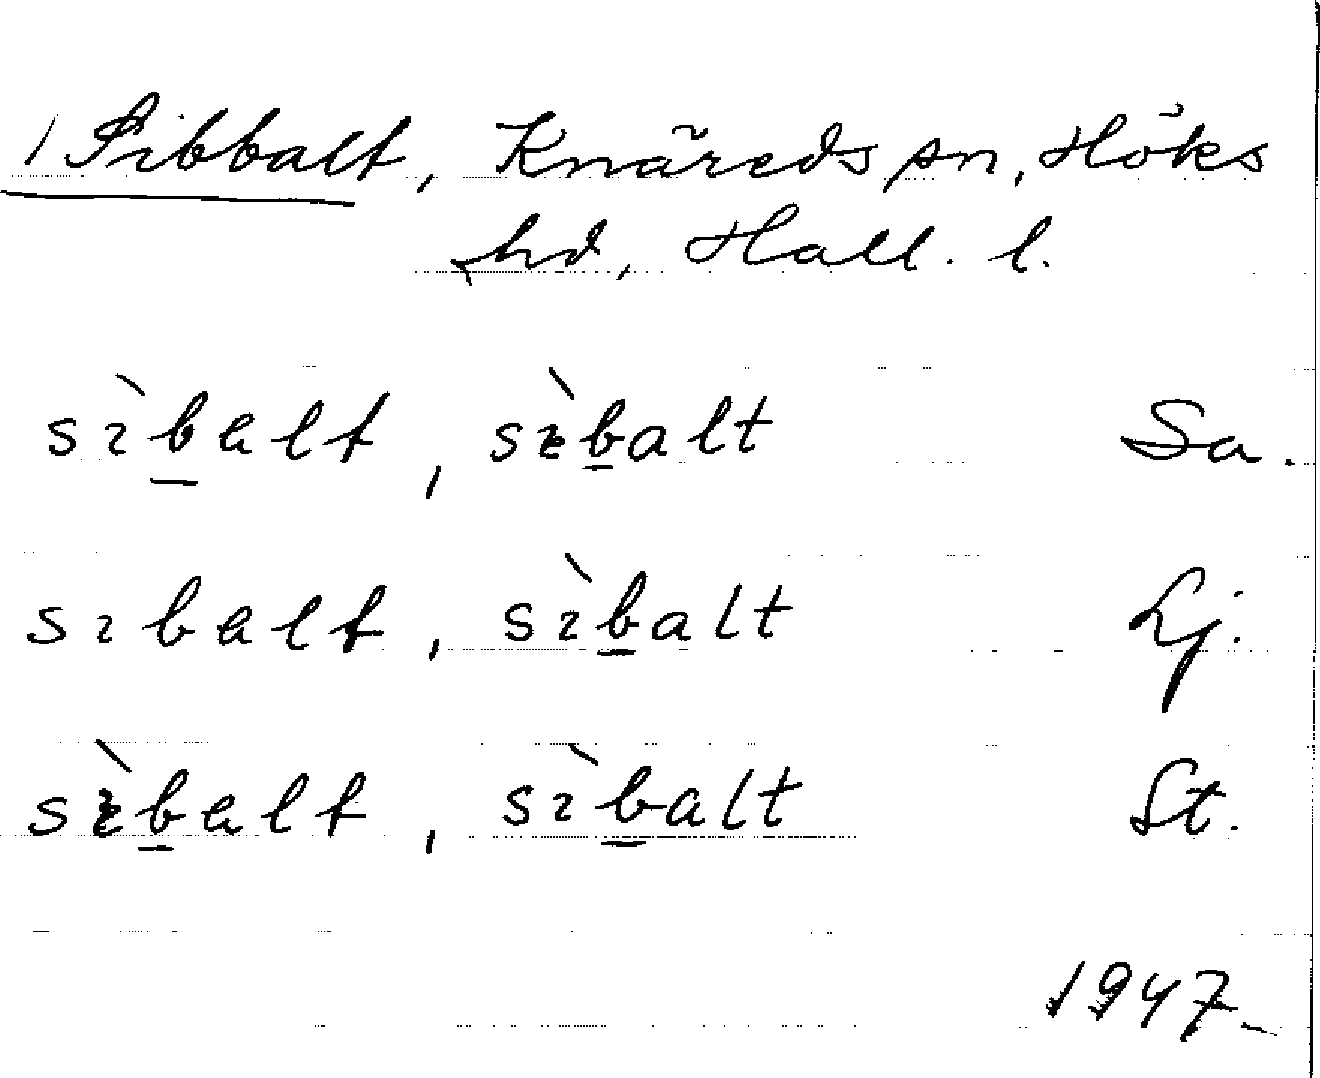 1 Sibbalt, Knäreds sn, Höks
hd, Hall. l.
sìb̲alt, sìb̲alt Sa.
sıbalt, sìb̲alt Lj.
sìb̲alt, sìb̲alt St.
1947